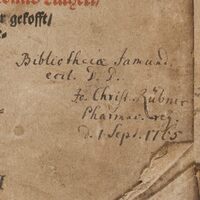 r gekofft/
Bibliotheciæ Samund.
D. D.
Jo. Christ. Hübner
Pharmac. reg.
d. 1 Sept. 1765